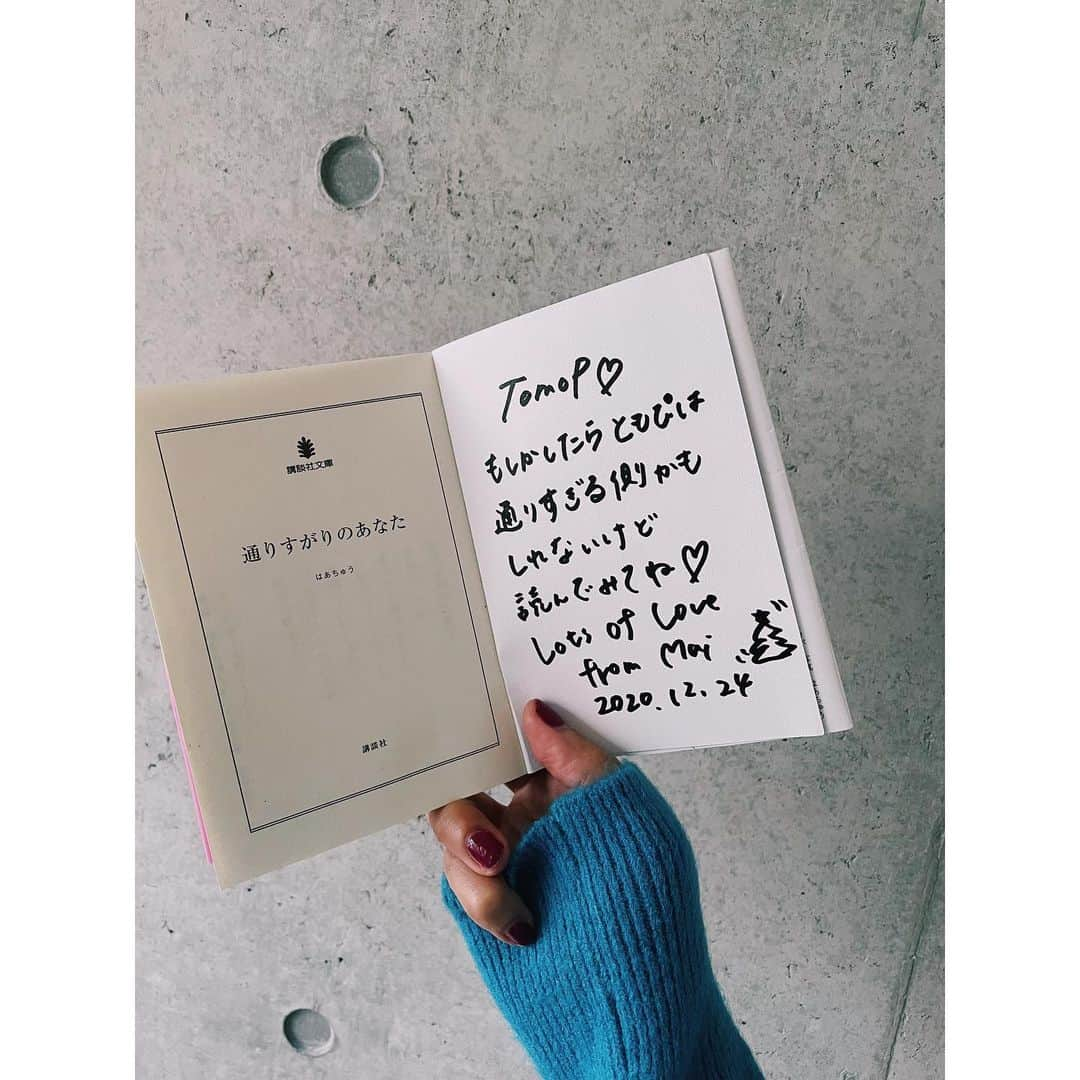 講談社文庫
通りすがりのあなた
はあちゅう
講談社
TomoP♡
もしかしたらともぴは
通りすぎる側かも
しれないけど
読んでみてね♡
Lots of Love
from Mai
2020.12.24